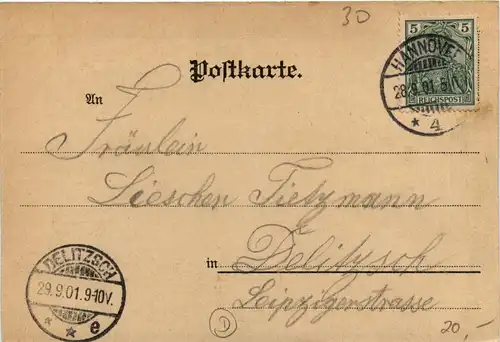 30
5 5
REICHSPOST
HANNOVER
28.9.01. 8-
* 4
Postkarte.
An
Fräulein
Lieschen Tietzmann
in Delitzsch
Leipzigerstrasse
DELITZSCH
29.9.01.9-10V.
* * e
D
20,-